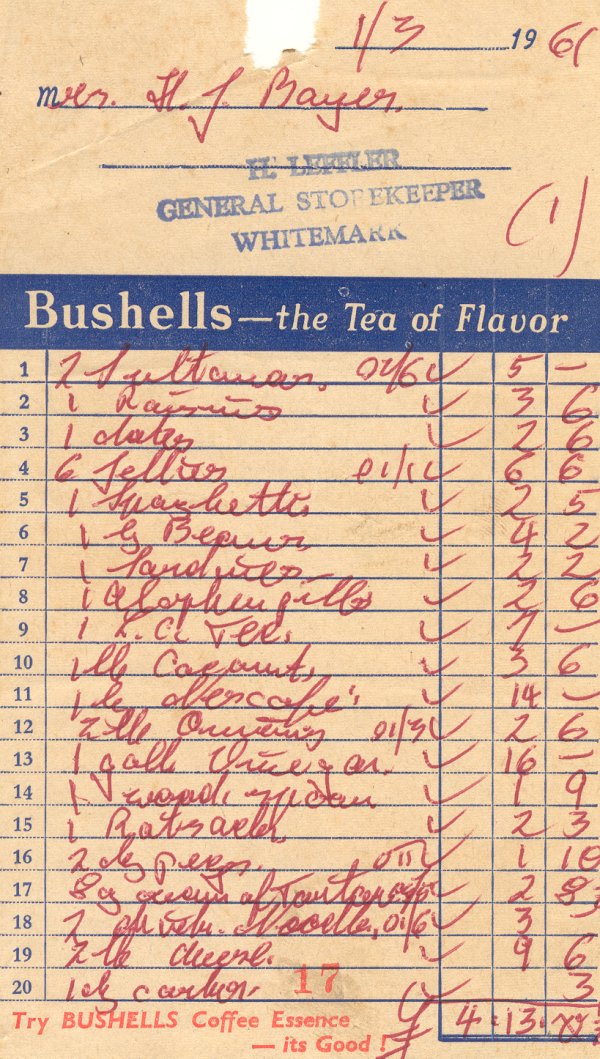 1/3 1961
Mrs. H. J. Bayes.
H. LEFFLER
GENERAL STOREKEEPER
WHITEMARK
(1)
Bushells—the Tea of Flavor
1 2 Sultanas. @2/6 ✓ 5 –
2 1 Raisins ✓ 3 6
3 1 dates ✓ 2 6
4 6 Jellies @1/1 ✓ 6 6
5 1 Spaghetti ✓ 2 5
6 1 lg Beans ✓ 4 2
7 1 Sardines ✓ 2 2
8 1 ✓ 2 6
9 1 Tea. ✓ 7 –
10 1 lb Coconut. ✓ 3 6
11 1 lg Nescafe ✓ 14 –
12 2 lb Onions @1/3 ✓ 2 6
13 1 gall Vinegar. ✓ 16 –
14 1 wood spoon ✓ 1 9
15 1 Ratsack. ✓ 2 3
16 2 pegs. @11 ✓ 1 10
17 8 oz cream of Tartar ✓ 2 8
18 2 Noodle, @1/6 ✓ 3
19 2 lb cheese. ✓ 9 6
20 1 carbon 3
17
4 . 13 .
Try BUSHELLS Coffee Essence
— its Good !